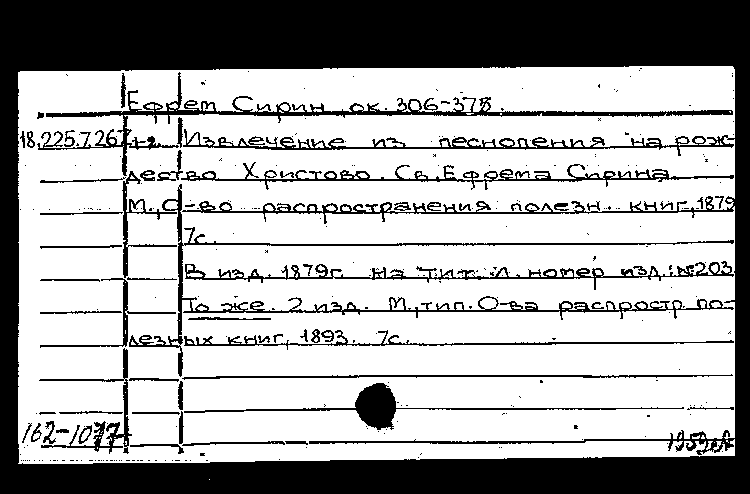 Ефрем Сирин, ок. 306-378.
18.225.7.267 1-2. Извлечение из песнопения на рож-
дество Христово. Св. Ефрема Сирина.
М., О-во распространения полезн. книг, 1879
7с.
В изд. 1879г. на тит. л. номер изд.: №203.
То же. 2 изд. М., тип. О-ва распростр. по-
лезных книг, 1893. 7с.
162-1077